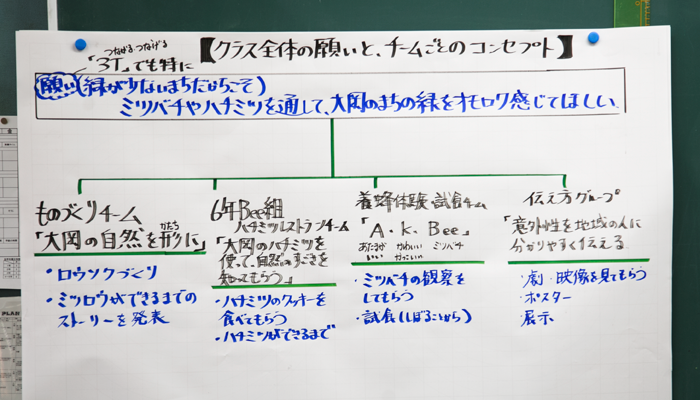 つながる、つなげる
「3T」でも特に
【クラス全体の願いと、チームごとのコンセプト】
願い(緑が少ないまちだからこそ)
ミツバチやハチミツを通して、大岡のまちの緑をオモロク感じてほしい
ものづくりチーム
かたち
「大岡の自然を形に」
・ロウソクづくり
・ミツロウができるまでの
ストーリーを発表
6年Bee組
ハチミツレストランチーム
「大岡のハチミツを
使って、自然のすごさを
知ってもらう」
・ハチミツのクッキーを
食べてもらう
・ハチミツができるまで
養蜂体験・試食チーム
「A.K.Bee」
あたまが かわいい ミツバチ
いい かっこいい
・ミツバチの観察を
してもらう
・試食(しぼることから)
伝え方グループ
「意外性を地域の人に
分かりやすく伝える」
・劇・映像を見てもらう
・ポスター
・展示